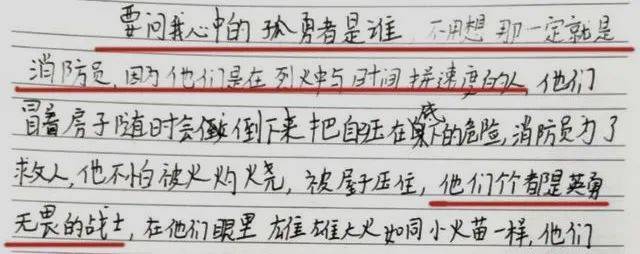 要问我心中的孤勇者是谁，不用想那一定就是
消防员，因为他们是在烈火中与时间拼速度的人，他们
冒着房子随时会倒下来把自己压在底下的危险，消防员为了
救人，他不怕被火灼烧，被屋子压住，他们个个都是英勇
无畏的战士，在他们眼里雄雄大火如同小火苗一样，他们